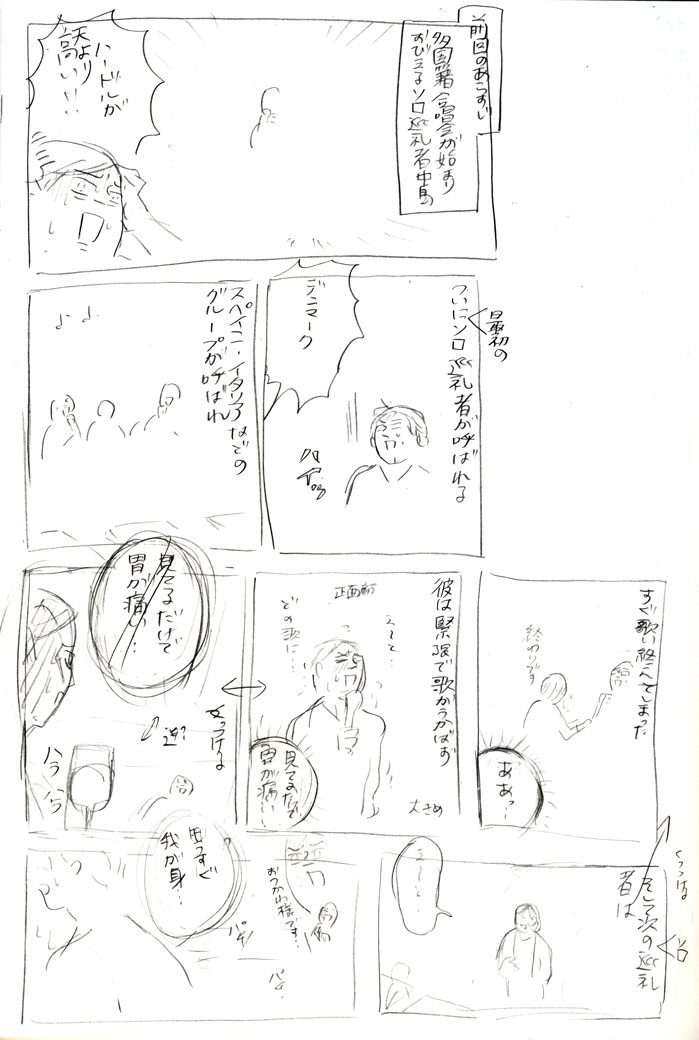 前回のあらすじ
多国籍合唱会が始まり
おびえるソロ巡礼者中島
ハードルが
天より
高い!!
最初の
ついにソロ巡礼者が呼ばれる
デンマーク
ハイ
スペイン・イタリアなどの
グループが呼ばれ
すぐ歌い終えてしまった
終わりです
ああっ…
彼は緊張で歌がうかばず
正面顔
えーと…
どの歌に…
見てるだけで
胃が痛い…
大きめ
見てるだけで
胃が痛い…
逆?
ハラ
ハラ
くっつける
そして次の巡礼
者は
ソロ
えーと…
おつかれ様です…
パチ
パチ
明日すぐ
我が身…